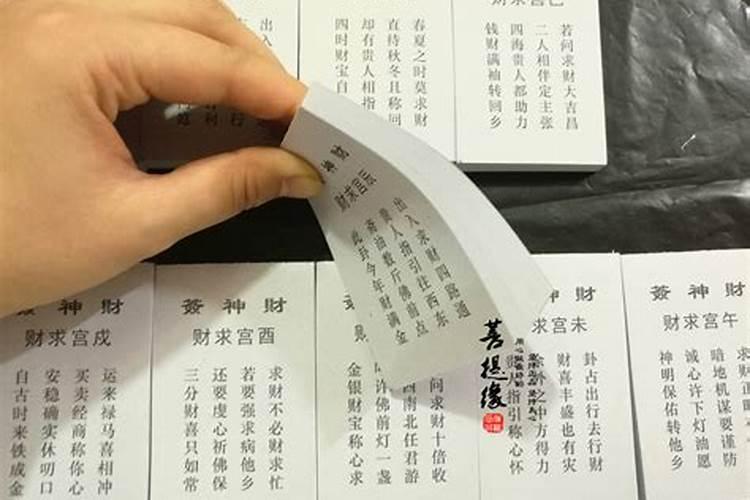 出入
四时财宝自
却有贵人相指
直待秋冬且称回
春夏之时莫求财
若问求财大吉昌
二人相伴定主张
四海贵人都助力
钱财满袖转回乡
财求宫
出入求财四路通
贵人指引往西东
斋油数斤佛前点
此卦今年财满金
簽神財
财求宫戌
运来禄马喜相冲
买卖经商称你心
安稳确实休叨口
自古时来铁成金
簽神財
财求宫酉
求财不必财求忙
若要强求病他乡
还要虔心祈佛保
三分财喜只如常
问求财十倍收
西南北任君游
许佛前灯一盏
金银财宝称心求
財
求宫未
卦占出行去行财
财喜丰盛也有灾
外之中方得力
指引称心怀
簽神財
财求宫午
暗地机谋要谨防
诚心许下灯油愿
神明保佑转他乡
菩提缘